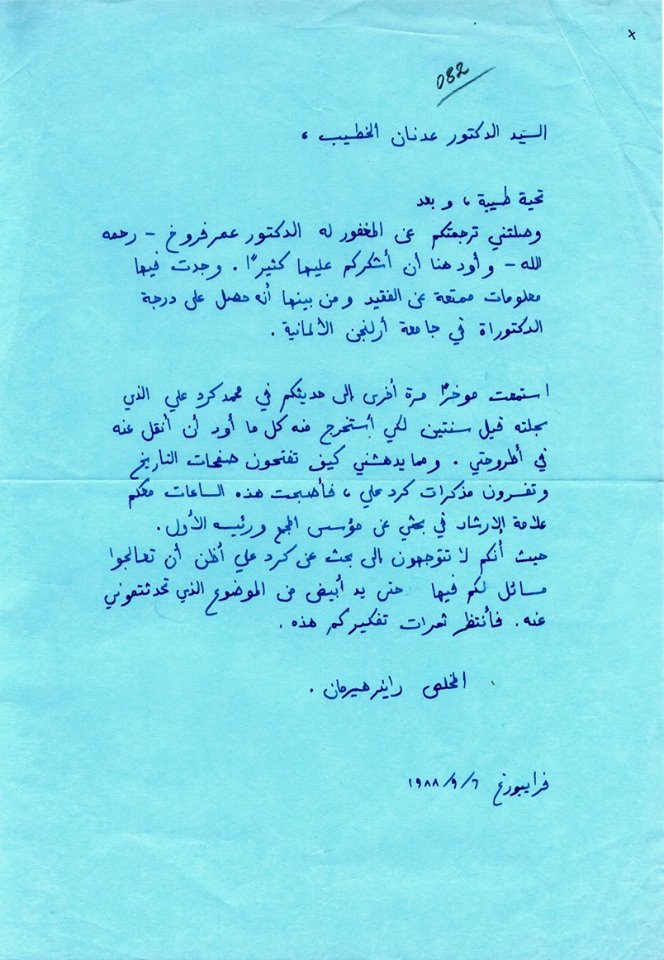 x
082
السيد الدكتور عدنان الخطيب ،
تحية طيبة ، و بعد
وصلتني ترجمتكم عن المغفور له الدكتور عمر فروخ – رحمه
الله – و أود هنا أن أشكركم عليها كثيرًا . وجدت فيها
معلومات ممتعة عن الفقيد ومن بينها أنه حصل على درجة
الدكتوراة في جامعة أرلنجن الألمانية .
استمعت موخرًا مرة أخرى إلى حديثكم في محمد كرد علي الذي
سجلته قبل سنتين لكي أستخرج منه كل ما أود أن أنقل عنه
في أطروحتي . ومما يدهشني كيف تفتحون صفحات التاريخ
وتفسرون مذكرات كرد علي ، فأصبحت هذه الساعات معكم
علامة الارشاد في بحثي عن مؤسس المجمع ورئيسه الأول .
حيث أنكم لا تتوجهون إلى بحث عن كرد علي أظن أن تعالجوا
مسائل لكم فيها حتى يد أبيض من الموضوع الذي تحدثتموني
عنه . فأنتظر ثمرات تفكيركم هذه .
المخلص راينر هيرمان .
فرايبورغ ١٩٨٨/٩/٦